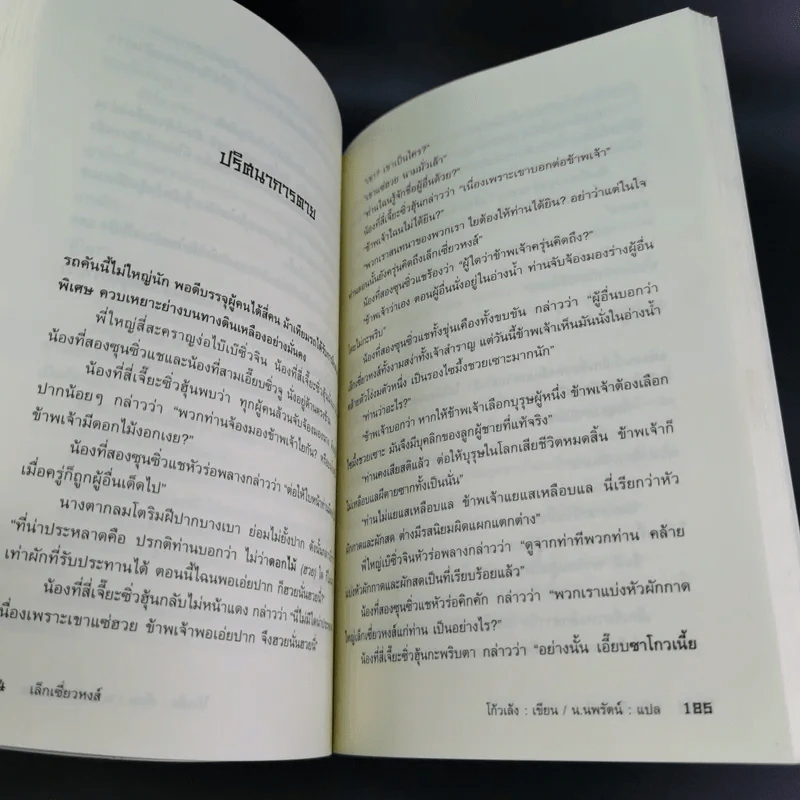 ปริศนาการตาย
รถคันนี้ไม่ใหญ่นัก พอดีบรรจุผู้คนได้สี่คน ม้าเทียมรถได้รับการ
พิเศษ ควบเหยาะย่างบนทางดินเหลืองอย่างมั่นคง
พี่ใหญ่สี่สะคราญง่อไบ๊เบ๊ซิ่วจิน น้องที่สี่เจี๊ยะซิ่วฮุ้น
น้องที่สองซุนซิ่วแชและน้องที่สามเอี๊ยบซิ่วจู นั่งอยู่ด้านตรงข้าม
น้องที่สี่เจี๊ยะซิ่วฮุ้นพบว่า ทุกผู้คนล้วนจับจ้องมอง
ปากน้อยๆ กล่าวว่า “พวกท่านจ้องมองข้าพเจ้าไยกัน?
ข้าพเจ้ามีดอกไม้งอกเงย?”
น้องที่สองซุนซิ่วแชหัวร่อพลางกล่าวว่า “ต่อให้ใบหน้าท่าน
เมื่อครู่ก็ถูกผู้อื่นเด็ดไป”
นางตากลมโตริมฝีปากบางเบา ย่อมไม่ยั้งปาก
“ที่น่าประหลาดคือ ปรกติท่านบอกว่า ไม่ว่าดอกไม้ (ฮวย) ใด
เท่าผักที่รับประทานได้ ตอนนี้ไฉนพอเอ่ยปาก ก็ฮวยนั่นฮวยนี้”
น้องที่สี่เจี๊ยะซิ่วฮุ้นกลับไม่หน้าแดง กล่าวว่า
เนื่องเพราะเขาแซ่ฮวย ข้าพเจ้าพอเอ่ยปาก จึงฮวยนั่นฮวยนี้”
4 เล็กเซี่ยวหงส์
“เขา? เขาเป็นใคร?”
“เขาแซ่ฮวย นามมัวเล้า”
“ท่านไฉนรู้จักชื่อผู้อื่นด้วย?”
น้องที่สี่เจี๊ยะซิ่วฮุ้นกล่าวว่า “เนื่องเพราะเขาบอกต่อข้าพเจ้า”
“ข้าพเจ้าไฉนไม่ได้ยิน?”
“พวกเราสนทนาของพวกเรา ไยต้องให้ท่านได้ยิน? อย่าว่าแต่ในใจ
ท่านตอนนั้นยังครุ่นคิดถึงเล็กเซี่ยวหงส์”
น้องที่สองซุนซิ่วแชร้องว่า “ผู้ใดว่าข้าพเจ้าครุ่นคิดถึง?”
“ข้าพเจ้าว่าเอง ตอนผู้อื่นนั่งอยู่ในอ่างน้ำ ท่านจับจ้องมองร่างผู้อื่น
โดยไม่กะพริบ”
น้องที่สองซุนซิ่วแชทั้งขุ่นเคืองทั้งขบขัน กล่าวว่า “ผู้อื่นบอกว่า
เล็กเซี่ยวหงส์ทั้งงามสง่าทั้งเจ้าสำราญ แต่วันนี้ข้าพเจ้าเห็นมันนั่งในอ่างน้ำ
คล้ายหัวโง่งมตัวหนึ่ง เป็นรองไซมึ้งชวยเซาะมากนัก”
“ท่านว่าอะไร?”
“ข้าพเจ้าบอกว่า หากให้ข้าพเจ้าเลือกบุรุษผู้หนึ่ง ข้าพเจ้าต้องเลือก
ไซมึ้งชวยเซาะ มันจึงมีบุคลิกของลูกผู้ชายที่แท้จริง”
“ท่านคงเสียสติแล้ว ต่อให้บุรุษในโลกเสียชีวิตหมดสิ้น ข้าพเจ้าก็
ไม่เหลือบแลผีตายซากทั้งเป็นนั่น”
“ท่านไม่แยแสเหลือบแล ข้าพเจ้าแยแสเหลือบแล นี่เรียกว่าหัว
ผักกาดและผักสด ต่างมีรสนิยมผิดแผกแตกต่าง”
พี่ใหญ่เบ๊ซิ่วจินหัวร่อพลางกล่าวว่า “ดูจากท่าทีพวกท่าน คล้าย
แบ่งหัวผักกาดและผักสดเป็นที่เรียบร้อยแล้ว”
น้องที่สองซุนซิ่วแชหัวร่อคิกคัก กล่าวว่า “พวกเราแบ่งหัวผักกาด
ใหญ่เล็กเซี่ยวหงส์แก่ท่าน เป็นอย่างไร?”
น้องที่สี่เจี๊ยะซิ่วฮุ้นกะพริบตา กล่าวว่า “อย่างนั้น เอี๊ยบซาโกวเนี้ย
โก้วเล้ง : เขียน / น.นพรัตน์ : แปล 185